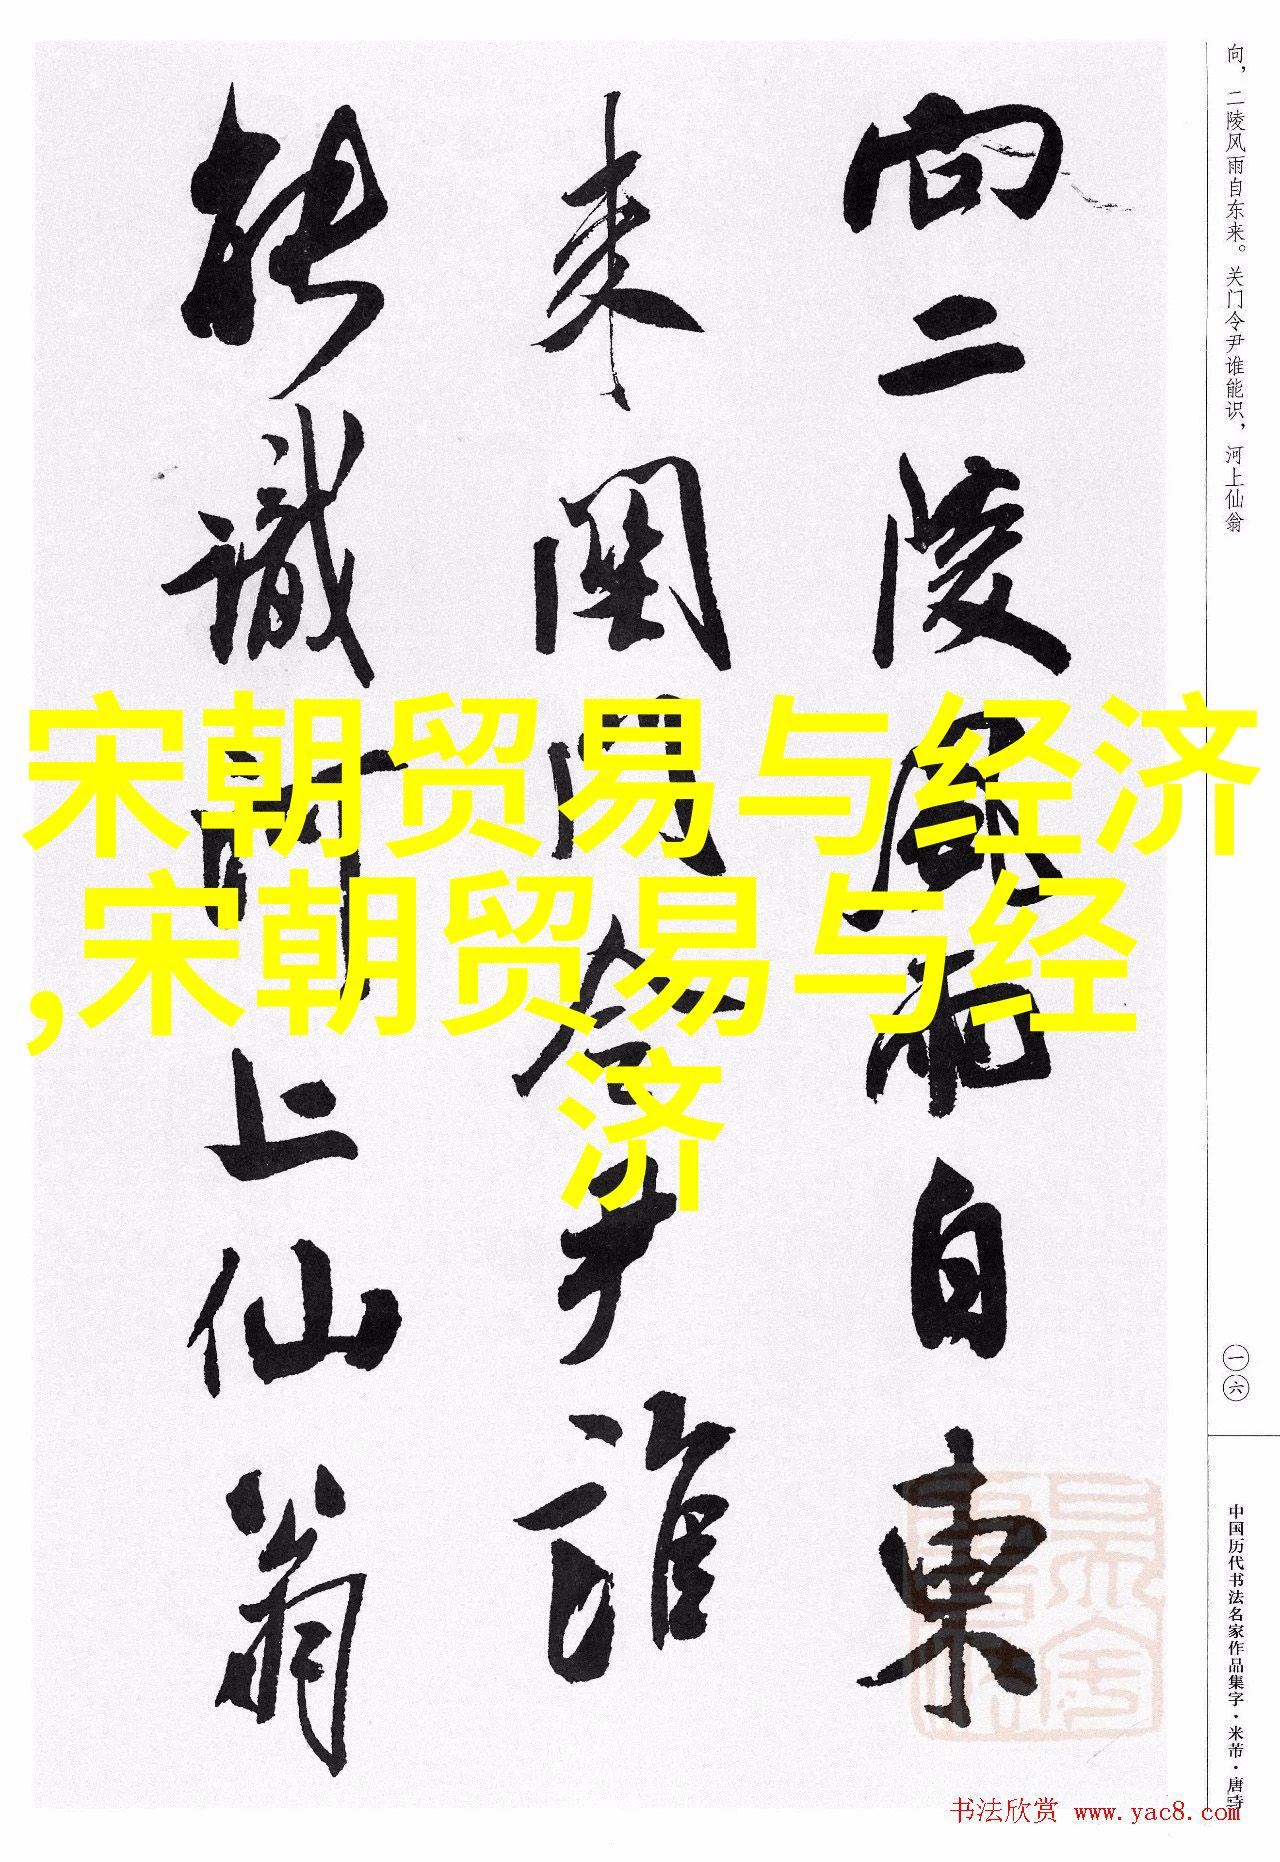 向二陵风雨自东
来關门令尹誰
能識河上仙翁
向，二陵风雨自东来。关门令尹谁能识，河上仙翁
一六
中国历代书法名家作品集字·米芾·唐诗
宋朝贸易与经济
,宋朝贸易与经
济
书法欣赏 www.yac8.com